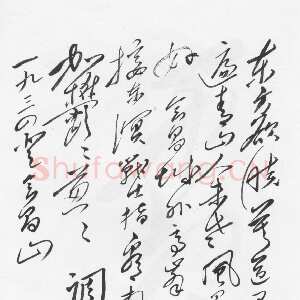 东方欲晓莫道
遍青山人未老风
好会昌城外高峰
接东溟战士指看南
加郁々葱々 调
一九三四登会昌山
Shufawang.CN